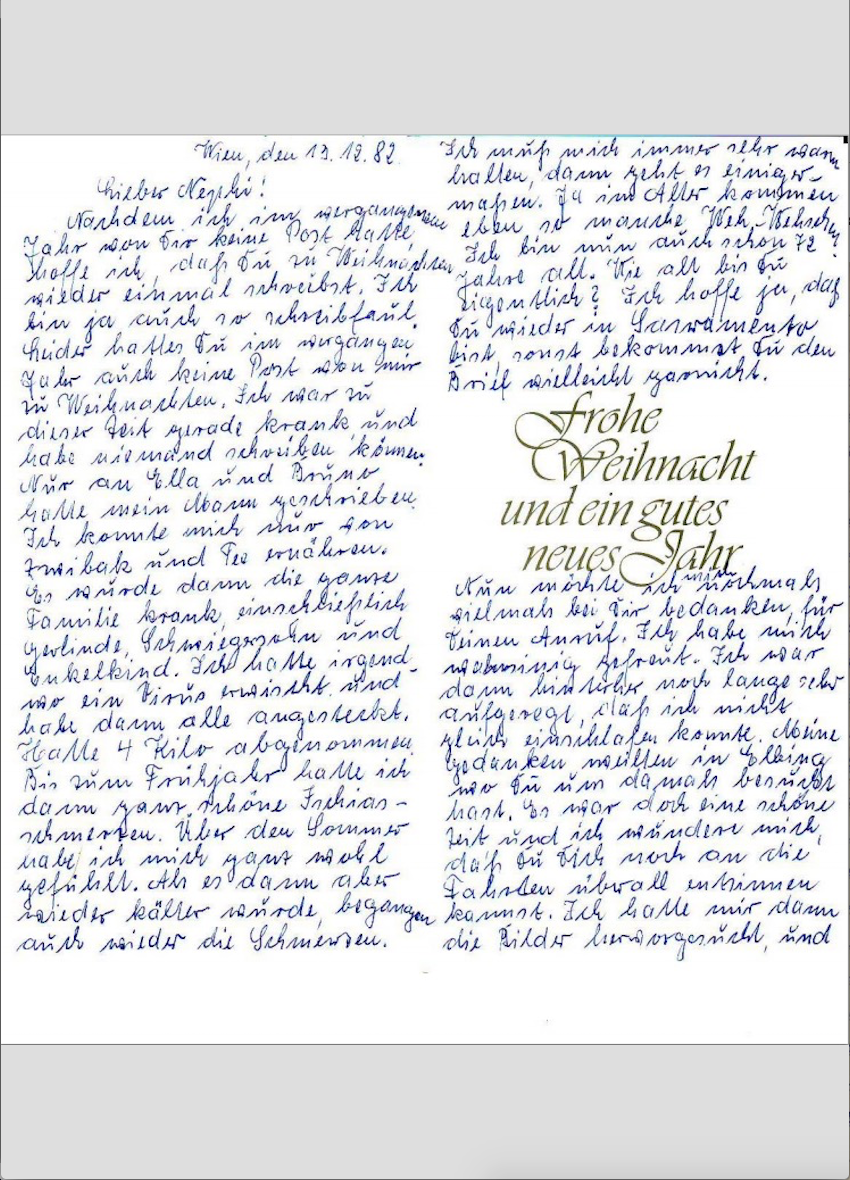 Wien, den 13.12.82.
Lieber Nephi!
Nachdem ich im vergangenen
Jahr von Dir keine Post hatte,
hoffe ich, daß Du zu Weihnachten
wieder einmal schreibst. Ich
bin ja auch so schreibfaul.
Leider hattes Du im vergangen
Jahr auch keine Post von mir
zu Weihnachten. Ich war zu
dieser Zeit gerade krank und
habe niemand schreiben können.
Nur an Ella und Bruno
hatte mein Mann geschrieben.
Ich konnte mich nur von
Zwibak und Tee ernähren.
Es wurde dann die ganze
Familie krank, einschließlich
Gerlinde, Schwiegersohn und
Enkelkind. Ich hatte irgend
wo ein Virus erwischt und
habe dann alle angesteckt.
Hatte 4 Kilo abgenommen.
Bis zum Frühjahr hatte ich
dann ganz schöne Ischias-
schmerzen. Über den Sommer
habe ich mich ganz wohl
gefühlt. Als es dann aber
wieder kälter wurde, begangen
auch wieder die Schmerzen.
Ich muß mich immer sehr warm
halten, dann geht es einiger-
maßen. Ja im Alter kommen
eben so manche Weh-Wehchen.
Ich bin nun auch schon 72
Jahre alt. Wie alt bis Du
eigentlich? Ich hoffe ja, daß
Du wieder in Sacramento
bist, sonst bekommst Du den
Brief vielleicht garnicht.
Frohe
Weihnacht
und ein gutes
neues Jahr
Nun möchte ich mich nochmals
vielmals bei Dir bedanken, für
Deinen Anruf. Ich habe mich
wahnsinig gefreut. Ich war
dann hinterher noch lange sehr
aufgeregt, daß ich nicht
gleich einschlafen konnte. Meine
Gedanken weilten in Elbing
wo Du uns damals besucht
hast. Es war doch eine schöne
Zeit und ich wundere mich,
daß Du Dich noch an die
Fahrten überall entsinnen
kannst. Ich hatte mir dann
die Bilder hervorgesucht, und